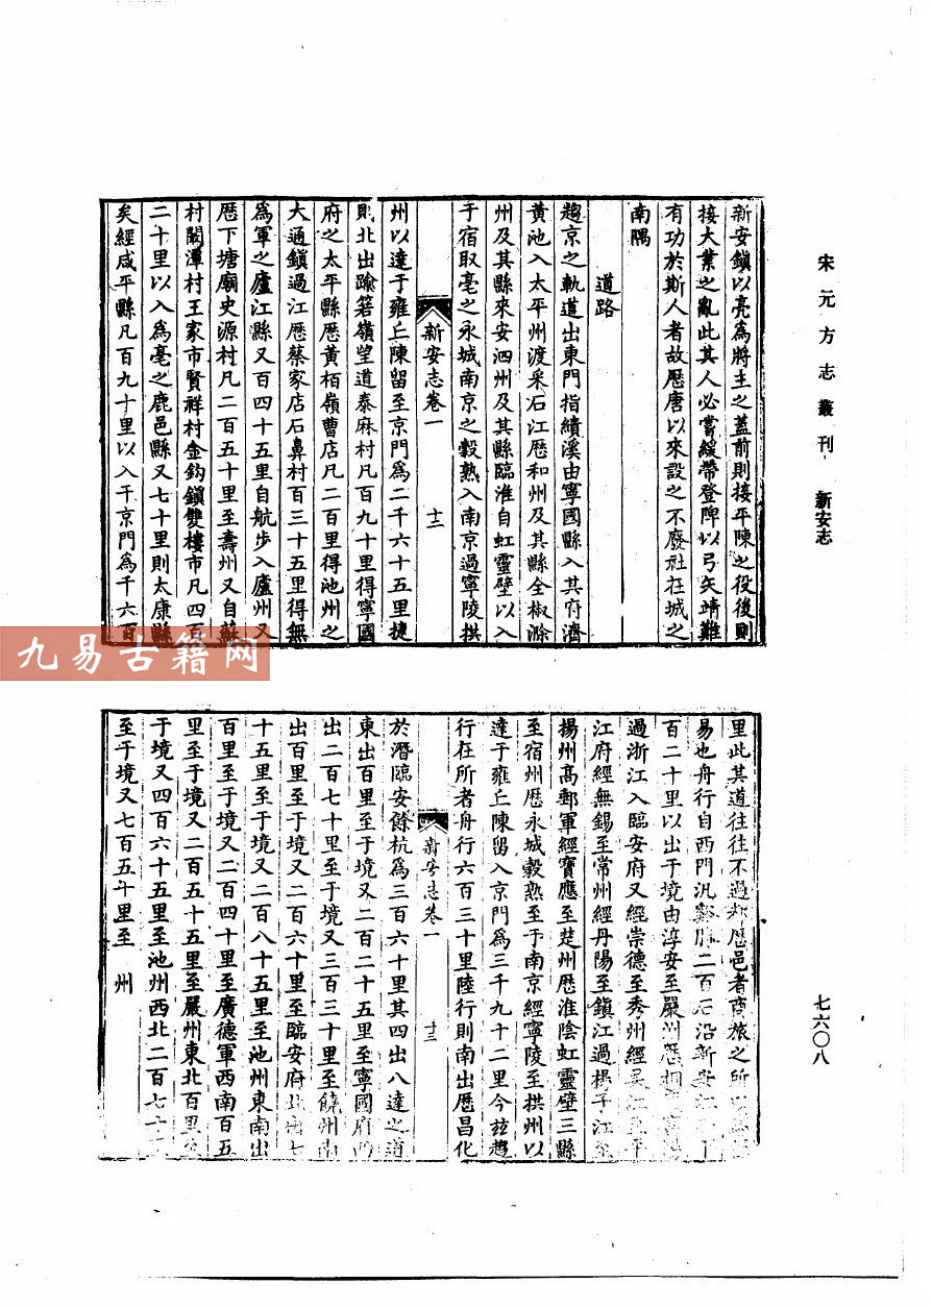 宋元方志叢刊 新安志
七六〇八
新安鎮以亮為將主之蓋前則接平陳之役後則
接大業之亂此其人必嘗緩帶登陴以弓矢靖難
有功於斯人者故歷唐以來設之不廢社在城之
南隅
道路
趨京之軌道出東門指績溪由寧國縣入其府濟
黃池入太平州渡采石江歷和州及其縣全椒滁
州及其縣來安泗州及其縣臨淮自虹靈壁以入
于宿取亳之永城南京之穀熟入南京過寧陵拱
新安志卷一 十二
州以達于雍丘陳留至京門為二千六十五里捷
則北出踰箬嶺望道泰麻村凡百九十里得寧國
府之太平縣歷黃栢嶺曹店凡二百里得池州之
大通鎮過江歷蔡家店石鼻村百三十五里得無
為軍之廬江縣又百四十五里自航步入廬州又
歷下塘廟史源村凡二百五十里至壽州又自蘇
村闞潭村王家市賢祥村金鈎鎮雙樓市凡四百
二十里以入為亳之鹿邑縣又七十里則太康縣
矣經咸平縣凡百九十里以入于京門為千六百
里此其道往往不過郡歷邑者商旅之所
易也舟行自西門汎 二百石沿新安江
百二十里以出于境由淳安至嚴州歷桐
過浙江入臨安府又經崇德至秀州經吳江至平
江府經無錫至常州經丹陽至鎮江過楊子江至
揚州高郵軍經寶應至楚州歷淮陰虹靈壁三縣
至宿州歷永城穀熟至于南京經寧陵至拱州以
達于雍丘陳留入京門為三千九十二里今兹趨
行在所者舟行六百三十里陸行則南出歷昌化
新安志卷一 十三
於潛臨安餘杭為三百六十里其四出八達之道
東出百里至于境又二百二十五里至寧國府西
出二百七十里至于境又三百三十里至饒州南
出百里至于境又二百六十里至臨安府北出七
十五里至于境又二百八十五里至池州東南出
百里至于境又二百四十里至廣德軍西南百五
里至于境又二百五十五里至嚴州東北百里至
于境又四百六十五里至池州西北二百七十
至于境又七百五十里至 州
九易古籍网